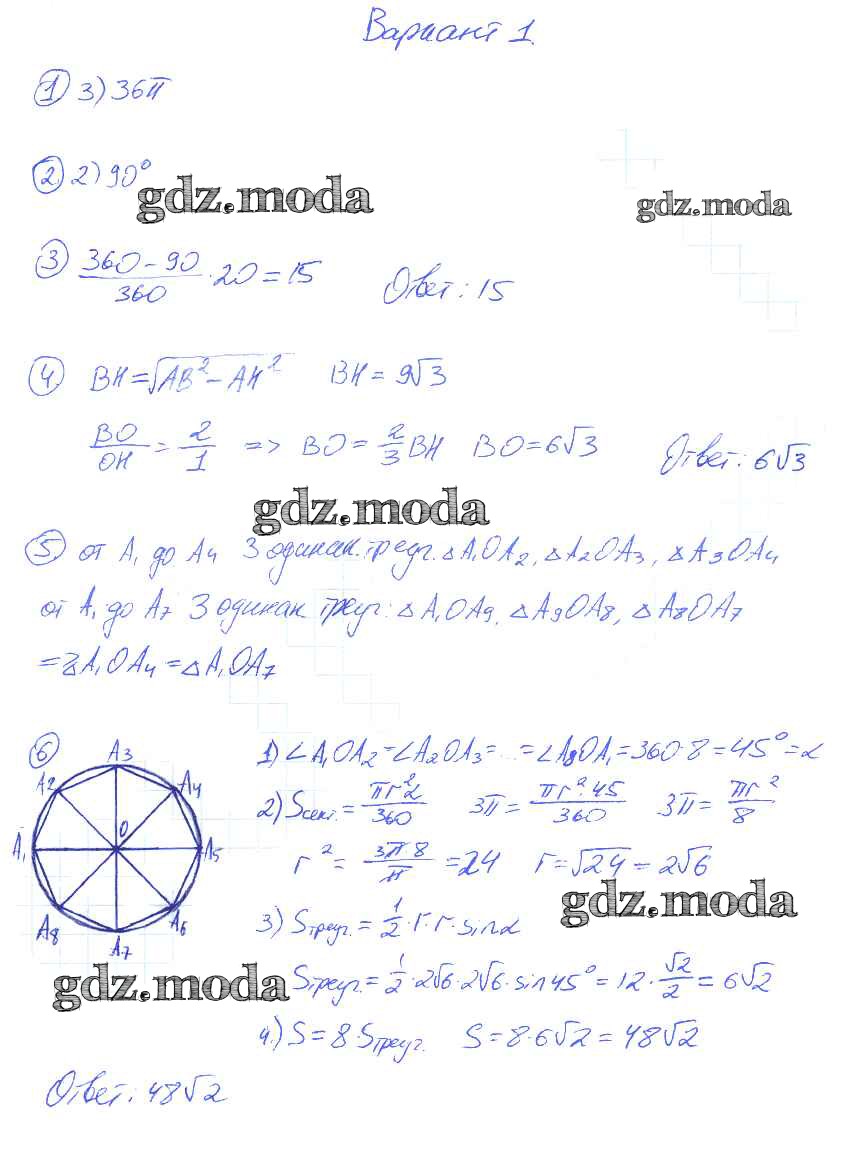 Вариант 1.
① 3) 36π
② 2) 90°
gdz.moda
gdz.moda
③ (360 - 90)/360 · 20 = 15 Ответ: 15
④ BH = √(AB² - AH²) BH = 9√3
BO/OH = 2/1 => BO = 2/3 BH BO = 6√3 Ответ: 6√3
gdz.moda
⑤ от A₁ до A₄ 3 одинак. треуг. △A₁OA₂, △A₂OA₃, △A₃OA₄
от A₁ до A₇ 3 одинак треуг: △A₁OA₉, △A₉OA₈, △A₈OA₇
=> △A₁OA₄ = △A₁OA₇
⑥ 1) ∠A₁OA₂ = ∠A₂OA₃ = ... = ∠A₈OA₁ = 360 · 8 = 45° = α
A₁
A₂
A₃
A₄
A₅
A₆
A₇
A₈
O
2) Sсект. = πr²α/360 3π = πr²·45/360 3π = πr²/8
r² = 3π·8/π = 24 r = √24 = 2√6
gdz.moda
3) Sтреуг. = 1/2 · r · r · sinα
gdz.moda
Sтреуг. = 1/2 · 2√6 · 2√6 · sin45° = 12 · √2/2 = 6√2
4.) S = 8 · Sтреуг. S = 8 · 6√2 = 48√2
Ответ: 48√2